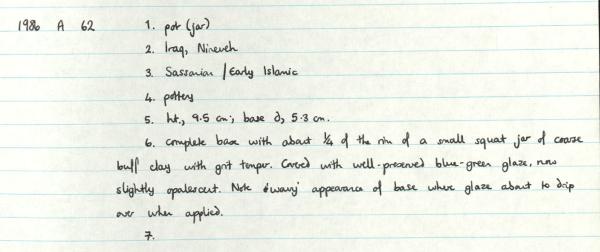 1986 A 62 1. pot (jar)
2. Iraq, Nineveh
3. Sassanian / Early Islamic
4. pottery
5. ht., 9.5 cm; base d, 5.3 cm.
6. complete base with about 1/4 of the rim of a small squat jar of coarse
buff clay with grit temper. Covered with well-preserved blue-green glaze, now
slightly opalescent. Note 'wavy' appearance of base where glaze about to drip
over when applied.
7.